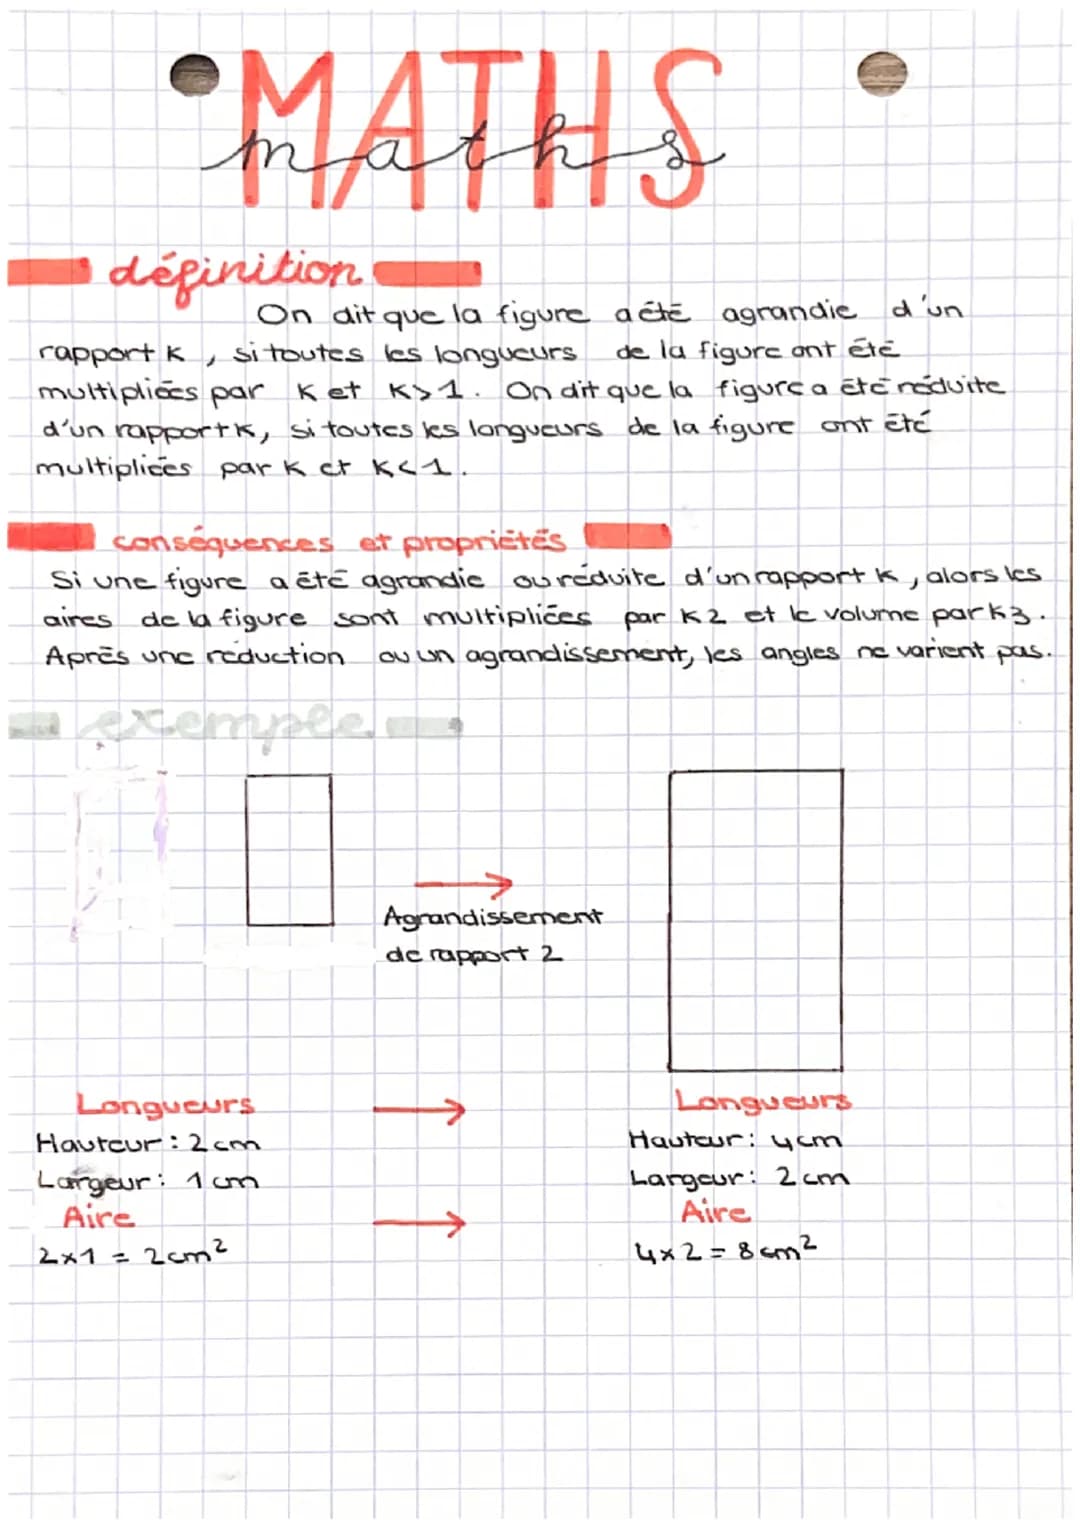 MATHS
maths
définition
On dit que la figure a été agrandie d'un
rapport K, si toutes les longueurs de la figure ont été
multipliées par K et K>1. On dit que la figure a été réduite
d'un rapport K, si toutes les longueurs de la figure ont été
multipliées par K et K<1.
conséquences et propriétés
Si une figure a été agrandie ou réduite d'un rapport K, alors les
aires de la figure sont multipliées par K2 et le volume par K3.
Après une réduction ou un agrandissement, les angles ne varient pas.
exemple
Agrandissement
de rapport 2
Longueurs → Longueurs
Hauteur : 2 cm Hauteur : 4 cm
Largeur : 1 cm Largeur : 2 cm
Aire → Aire
2x1 = 2cm² 4x2 = 8 cm²